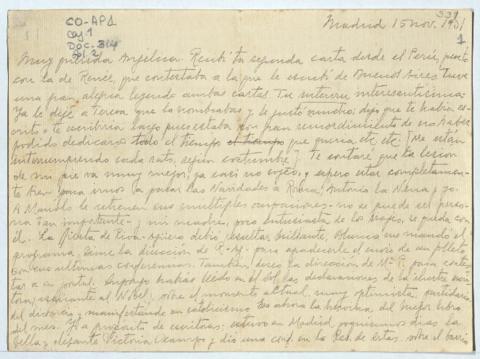 CO-AP1
Caj 1
Doc-314
fol 2
331
1
Madrid 15 nov. 1931
Muy querida Anjelina: Recibí tu segunda carta desde el Perú, junto
con la de Renée, que contestaba a la que le escribí de Buenos Aires. Tuve
una gran alegría leyendo ambas cartas. Tu interesantísima.
Ya le dije a Teresa que la nombrabas y le gustó mucho; dijo que te había es-
crito o te escribiría largo pues estaba con gran remordimiento de no haber
podido dedicaros todo el tiempo que quería, etc etc (Me están
interrumpiendo cada rato, según costumbre) Te contaré que la lesión
de mi pie va muy mejor, ya casi no cojeo, y espero estar completamen-
te bien para irnos a pasar las Navidades a Roma, Antonia la Nena y yo.
A Manolo le retienen sus múltiples ocupaciones no se puede ser perso-
na tan importante y mi madre, poco entusiasta de los viajes, se queda con
él. La fiesta de Riva-Agüero debió resultar brillante,
programa. Dime la dirección de R-Ag. para agradecerle el envío de un folleto
con sus últimas conferencias. También, dime la dirección de para contes-
tar a su postal. Supongo habrás leído en El Sol las declaraciones de la ilustre escri-
tora, aspirante al Nobel, sobre el momento actual, muy optimista, partidaria
del divorcio y manifestando su catolicismo. Es ahora la heroína del mejor libro
del mes. Y a propósito de escritoras: estuvo en Madrid poquísimos días la
bella y elegante Victoria Ocampo y dio una conf. en la Res. de Stas. sobre el barrio